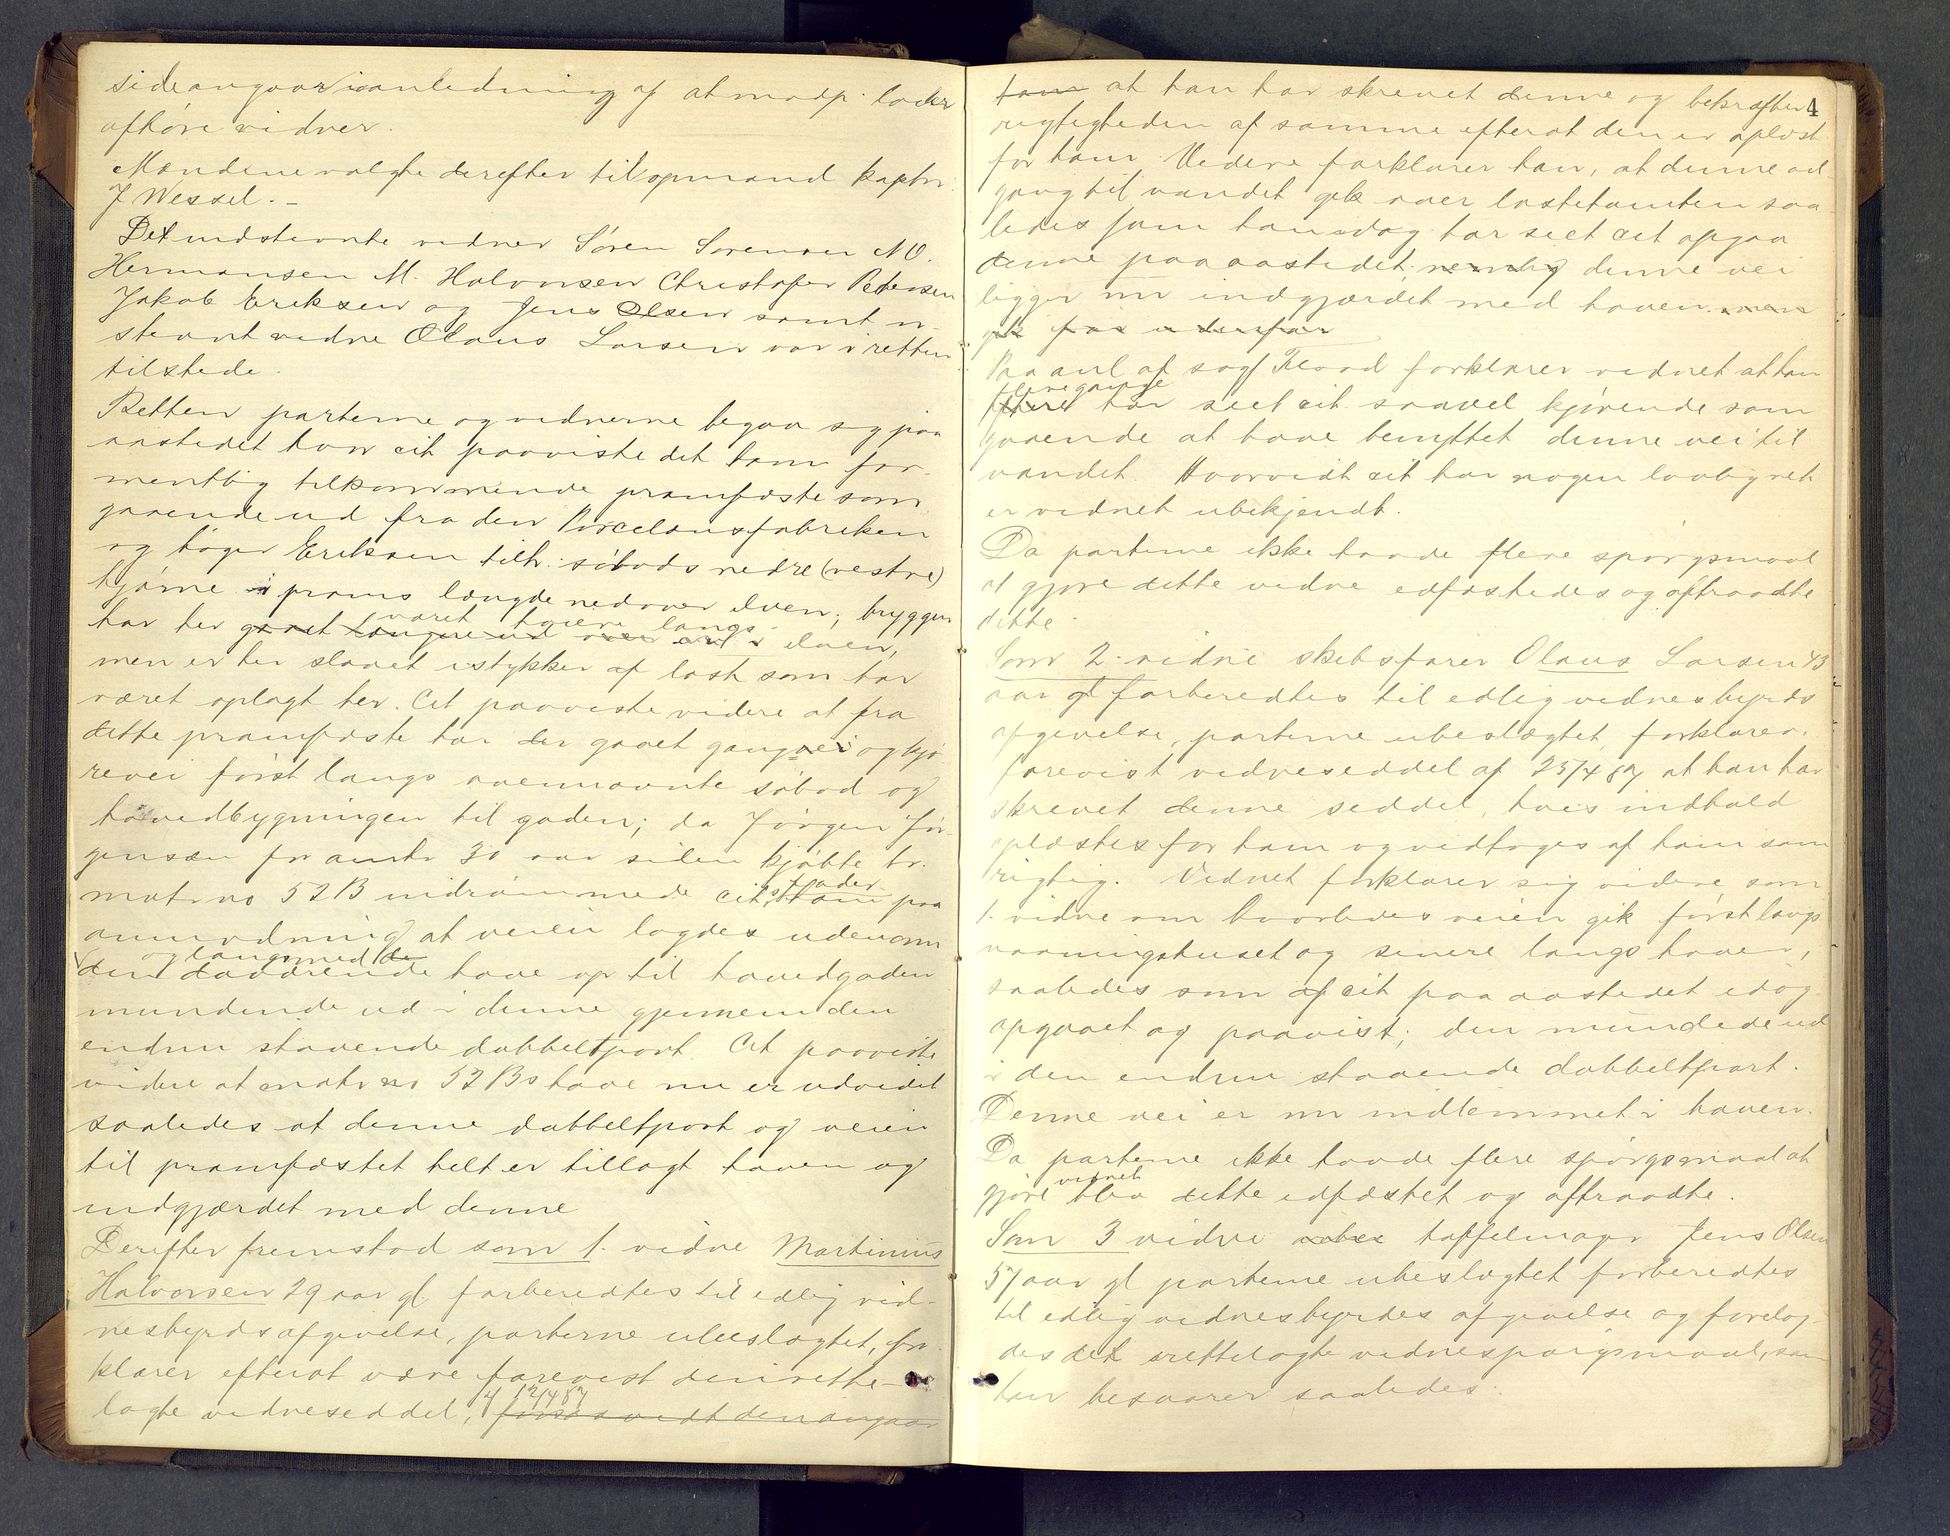 side angaar i anledning af at modp. lader
afhøre vidner.
Mændene valgte derefter til opmand kaptn.
J Wessel. –
De indstevnte vidner Søren Sørensen N O.
Hermansen M. Halvorsen Christofer Petersen
Jakob Eriksen og Jens Olsen samt u-
stevnt vidne Olaus Larsen var i retten
tilstede.
Retten parterne og vidnerne begav sig paa
aastedet hvor cit paaviste det ham for-
mentlig tilkommende pramfæste som
gaaende ud fra den Porcelænsfabriken
og høger Eriksen tilh. søbods nedre (vestre)
hjørne i prams længde nedover elven; bryggen
været høiere langs
har her gaaet længere ud i elven,
men er her slaaet istykker af last som har
været oplagt her. Cit paaviste videre at fra
dette pramfæste har der gaaet gangvei og kjø
revei først langs ovennævnte søbod og
hovedbygningen til gaden; da Jørgen Jør-
gensen for omtr 30 aar siden kjøbte br.
fader
matr no 52 B indrømmede cits ham paa
anmodning at veien lagdes udenom
og langs med de
den daværende have op til hovedgaden
mundende ud i denne gjennem den
endnu staaende dobbeltport. Cit paaviste
videre at matr no 52 Bs have nu er udvidet
saaledes at denne dobbeltport og veien
til pramfæstet helt er tillagt haven og
indgjærdet med denne
Derefter fremstod som 1. vidne Martinius
Halvorsen 29 aar gl forberedtes til edlig vid-
nesbyrds afgivelse, parterne ubeslægtet, for-
klarer efterat være forevist den i rette-
lagte vidneseddel, forsaavidt den angaar
4
ham at han har skrevet denne og bekræfter
rigtigheden af samme efterat den er oplæst
for ham. Videre forklarer han, at denne ad
gang til vandet gik over lastetomten saa
ledes som han idag har seet cit opgaa
denne paa aastedet; nemlig denne vei
ligger nu indgjærdet med haven men
gik før udenfor
Paa anl af sagf Flood forklarer vidnet at han
flere gange
har seet cit saavel kjørende som
gaaende at have benyttet denne vei til
vandet. Hvorvidt cit har nogen lovlig ret
er vidnet ubekjendt.
Da parterne ikke havde flere spørgsmaal
at gjøre dette vidne edfæstedes og aftraadte
dette.
Som 2. vidne skibsfører Olaus Larsen 43
aar gl forberedtes til edlig vidnesbyrds
afgivelse, parterne ubeslægtet, forklarer
forevist vidneseddel af 25/4 87 at han har
skrevet denne seddel, hvis indhold
oplæstes for ham og vedtoges af ham som
rigtig. Vidnet forklarer sig videre som
1. vidne om hvorledes veien gik først langs
vaaningshuset og senere langs haven,
saaledes som af cit paa aastedet idag
opgaaet og paavist; den mundede ud
i den endnu staaende dobbeltport.
Denne vei er nu indlemmet i haven.
Da parterne ikke havde flere spørgsmaal at
vidnet
gjøre blev dette edfæstet og aftraadte.
Som 3 vidne taffelmager Jens Olsen
57 aar gl parterne ubeslægtet forberedtes
til edlig vidnesbyrdes afgivelse og forelag-
des det irettelagte vidnespørgsmaal, som
han besvarer saaledes: